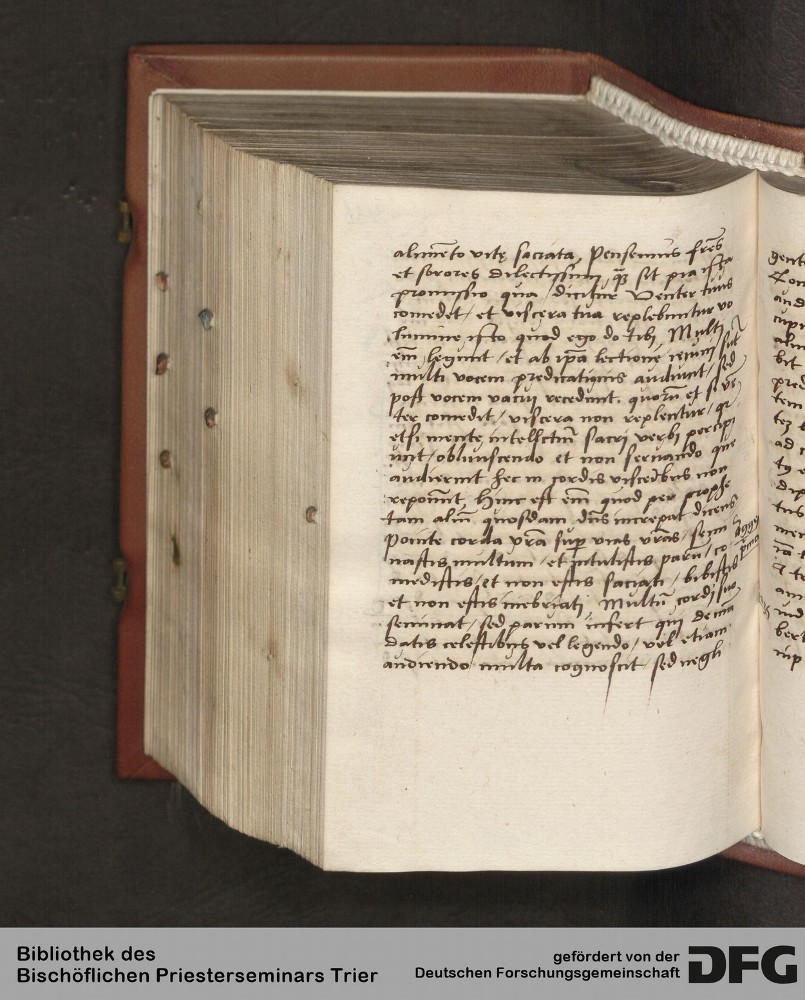 alimēto vitę saciata, Pensemus frēs
et sorores dilectissimi, qȝ sit pia ista
promissio qua dicitur Venter tuus
comedet, et viscera tua replebuntur vo
lumine isto quod ego do tibi, Multi
em̄ legunt, et ab ip̄a lectione ieiuni sūt
multi vocem predicationis audiunt, sed
post vocem vacui recedunt. quorū et si vē
ter comedit, viscera non replentur, qr
etsi mente intellectum sacri verbi percipi
unt, obliuiscendo et non seruando que
audierint hec in cordis visceribus non
reponunt, Hinc est em̄ quod per prophe
tam aliū, quosdam dn̄s increpat dicens
Ponite corda vr̄a sup vias vr̄as, semi
nastis multum, et intulistis parū, co
medistis, et non estis saciati, bibistis
et non estis inebriati Multū cordi suo
seminat, sed parum infert qui de mā
datis celestibus vel legendo, vel etiam
audiendo multa cognoscit, sed negli
Aggei
primo
Bibliothek des
Bischöflichen Priesterseminars Trier
gefördert von der
Deutschen Forschungsgemeinschaft
DFG